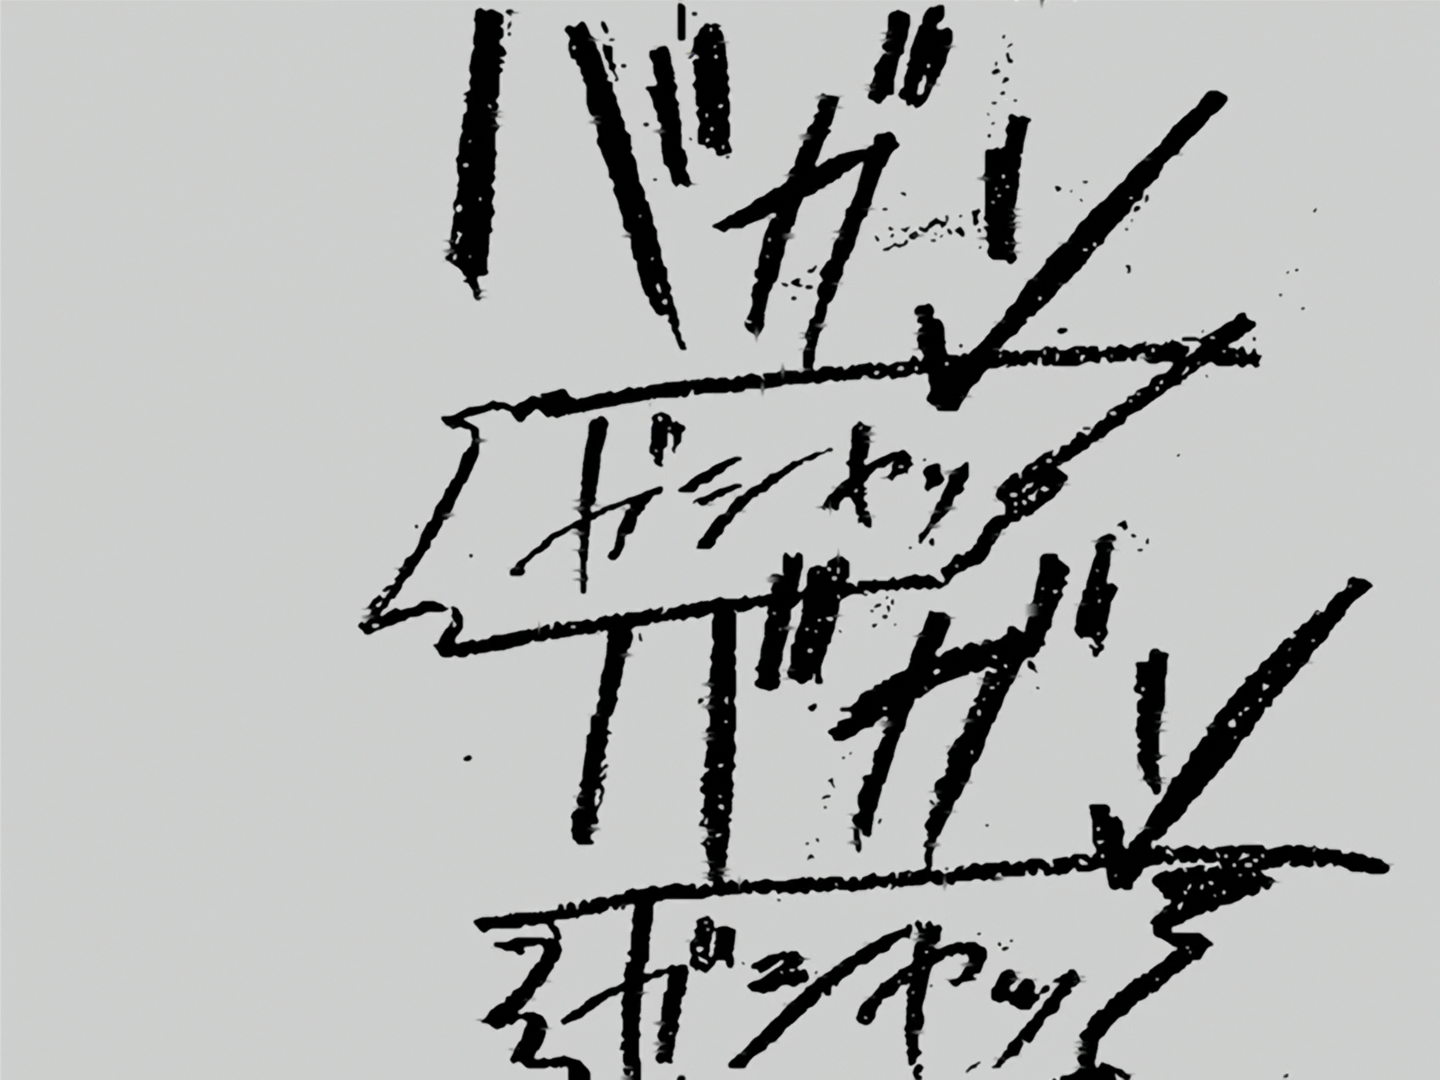 バガン
ガシャッ
バガン
ガシャッ